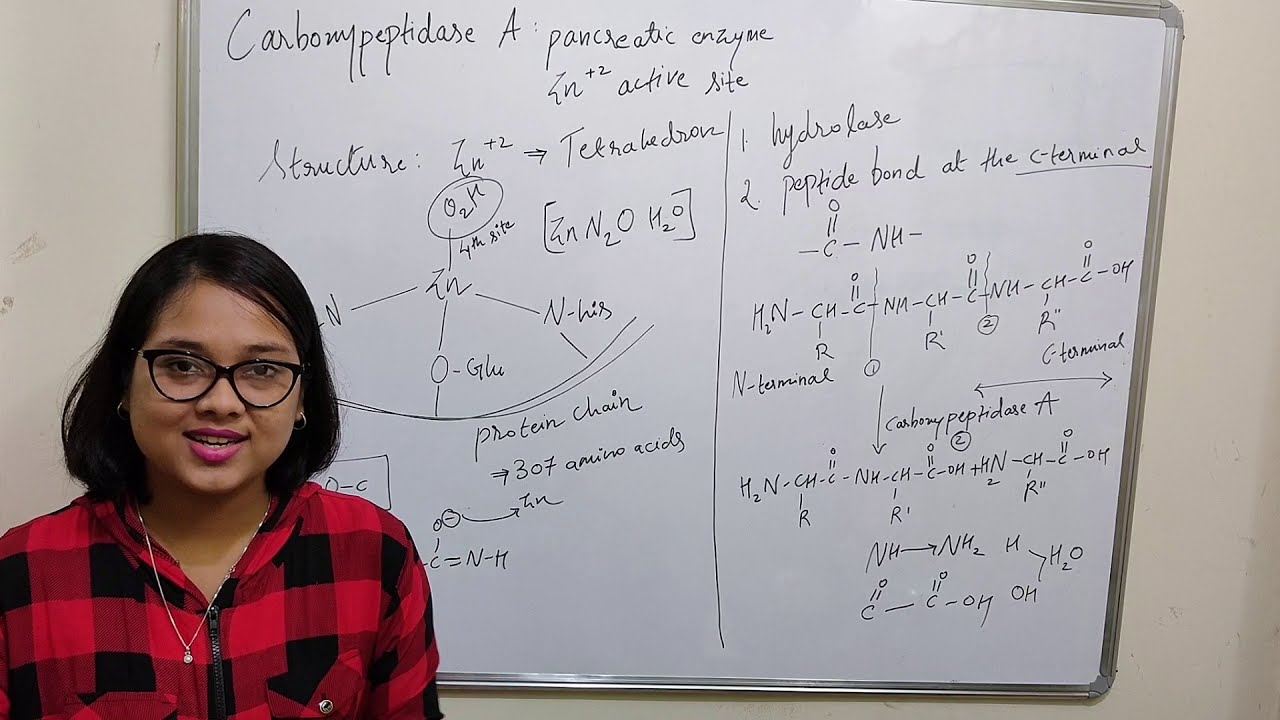 Carboxypeptidase A : pancreatic enzyme
Zn+2 active site
Structure : Zn+2 ⇒ Tetrahedron
O2H
4th site
[Zn N2O H2O]
N — Zn — N-his
O-Glu
protein chain
⇒ 307 amino acids
O-C
O⊖ → Zn
C=N-H
1. hydrolase
2. peptide bond at the C-terminal
O
— C — NH —
O O O
H2N — CH — C — NH — CH — C — NH — CH — C — OH
R R' R"
1 2
N-terminal
C-terminal
Carboxypeptidase A
2
O O O
H2N — CH — C — NH — CH — C — OH + H2N — CH — C — OH
R R' R"
NH → NH2 H
H2O
O O
C — C — OH OH